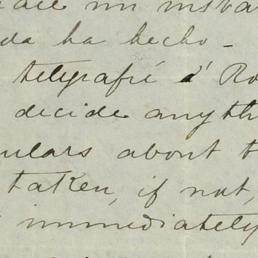 da ha hecho -
telegrafié á Ro
decide anyth
ulars about t
taken, if not,
immediately